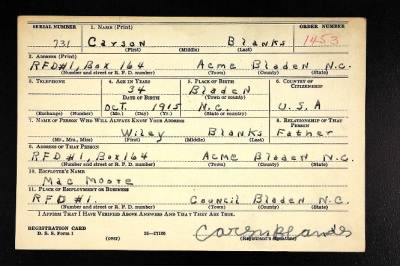 SERIAL NUMBER 1. NAME (Print) ORDER NUMBER
731 Carson Blanks 1453
(First) (Middle) (Last)
2. ADDRESS (Print)
RFD#1, Box 164 Acme Bladen N.C.
(Number and street or R. F. D. number) (Town) (County) (State)
3. TELEPHONE 4. AGE IN YEARS 5. PLACE OF BIRTH 6. COUNTRY OF CITIZENSHIP
34 Bladen
DATE OF BIRTH (Town or county)
Oct. 1915 N.C. U.S.A
(Exchange) (Number) (Mo.) (Day) (Yr.) (State or country)
7. NAME OF PERSON WHO WILL ALWAYS KNOW YOUR ADDRESS 8. RELATIONSHIP OF THAT PERSON
Wiley Blanks Father
(Mr., Mrs., Miss) (First) (Middle) (Last)
9. ADDRESS OF THAT PERSON
RFD #1, Box 164 Acme Bladen N.C.
(Number and street or R. F. D. number) (Town) (County) (State)
10. EMPLOYER'S NAME
Mac Moore
11. PLACE OF EMPLOYMENT OR BUSINESS
RFD #1. Council Bladen N.C.
(Number and street or R. F. D. number) (Town) (County) (State)
I AFFIRM THAT I HAVE VERIFIED ABOVE ANSWERS AND THAT THEY ARE TRUE.
REGISTRATION CARD
D. S. S. Form 1 (over) (Registrant's signature)